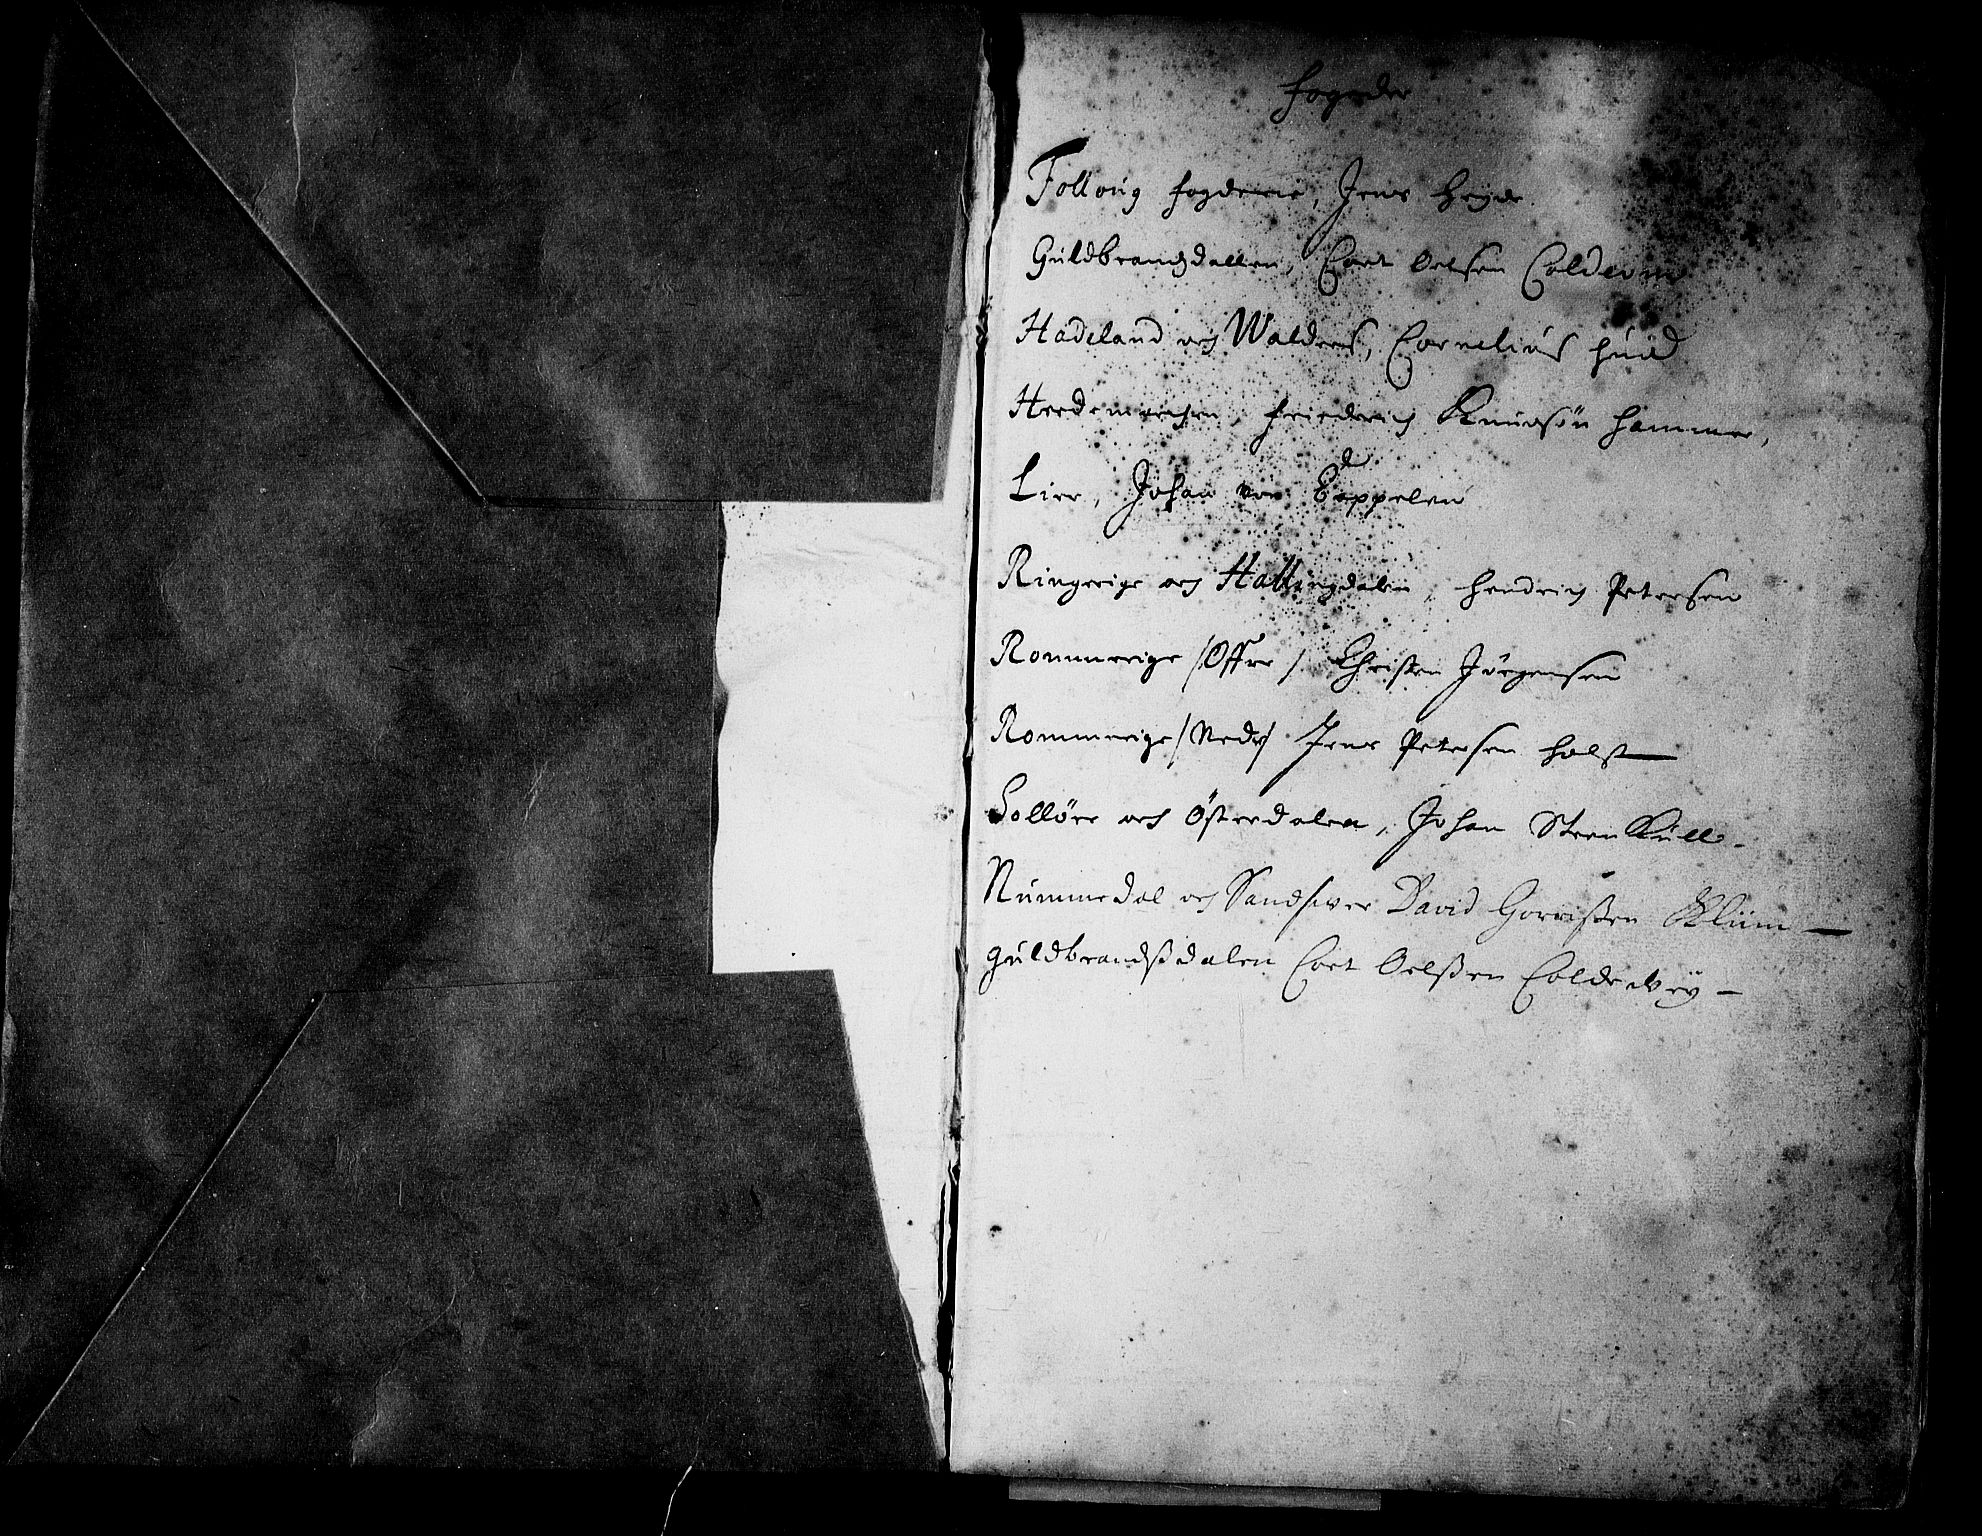 fogeder
Folloug fogderie, Jens Heyde
Guldbrandsdallen, Cort Oelsen Coldevin
Hadeland och Walders, Cornelius Huid
Heedemarchen, Friederich Knudsøn Hammer,
Lier, Johan von Cappelen
Ringerige och Hallingdalen, Hendrich Petersen
Rommerige /Offre/ Christen Jørgensen
Rommerige /Nedr/ Jens Petersen Holst
Sollöer och Österdalen, Johan Steen Kull.
Nummedal och Sandswer David Gorrissen Klüm
guldbrandsdalen Cort Oelssen Coldewey